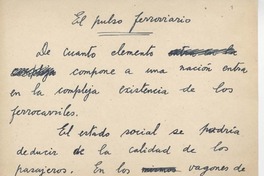 El pulso ferroviario
De cuanto elemento
compone a una nación entra
en la compleja existencia de los
ferrocarriles.
El estado social se podría
deducir de la calidad de los
pasajeros. En los vagones de